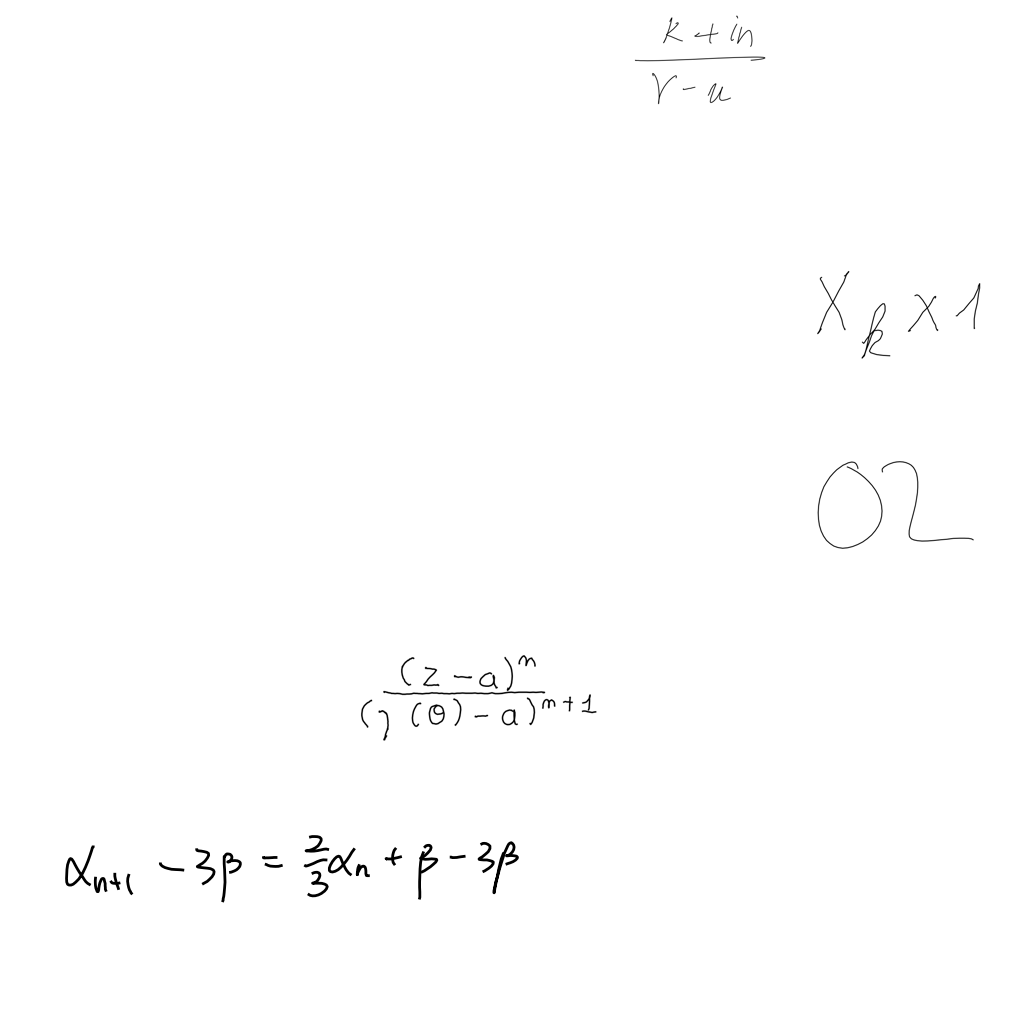 \frac{k+in}{r-u}
X_k x 1
02
\frac{(z-a)^n}{(\gamma(\theta)-a)^{n+1}}
\alpha_{n+1} - 3\beta = \frac{2}{3}\alpha_n + \beta - 3\beta